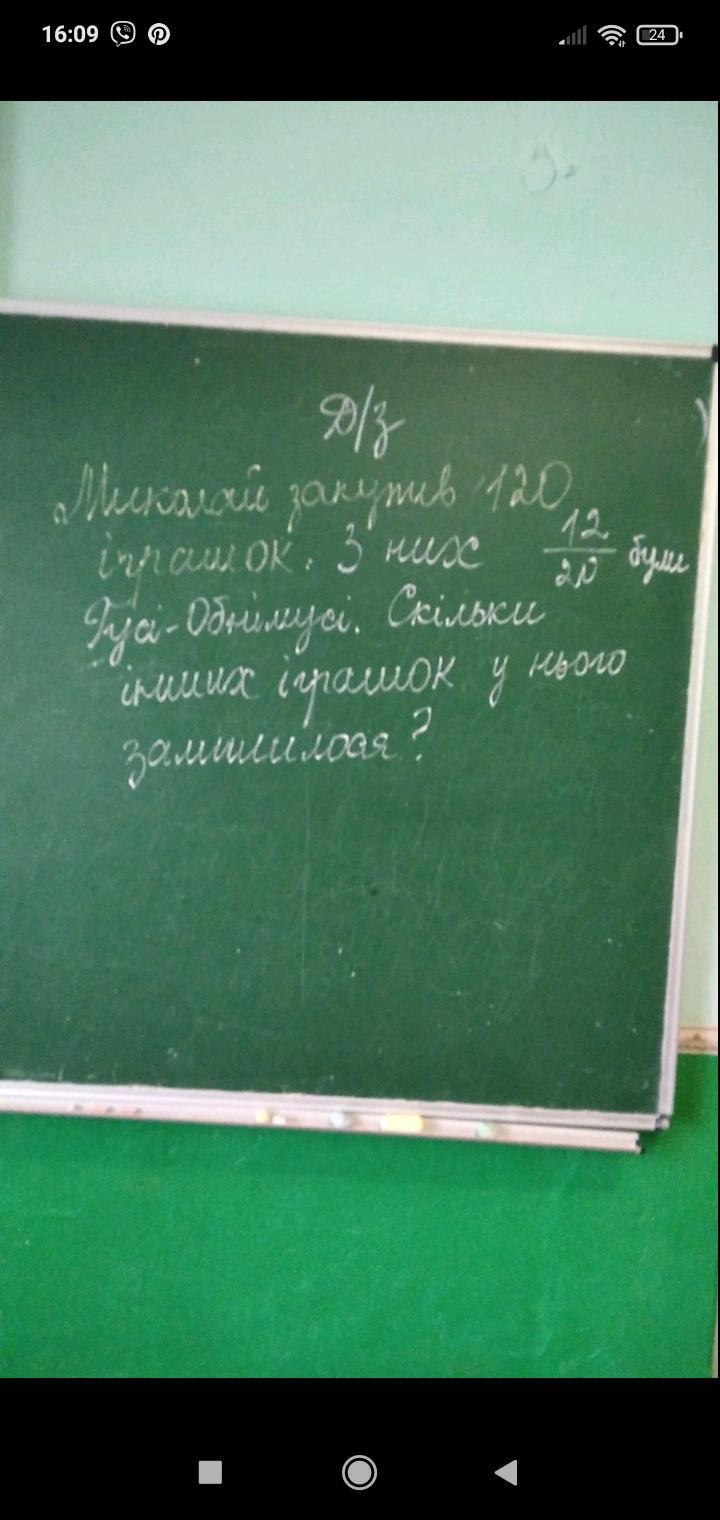 16:09
24
Д/з
Миколай закупив 120
іграшок. З них 12/20 були
Гусі-Обнімусі. Скільки
інших іграшок у нього
залишилося?